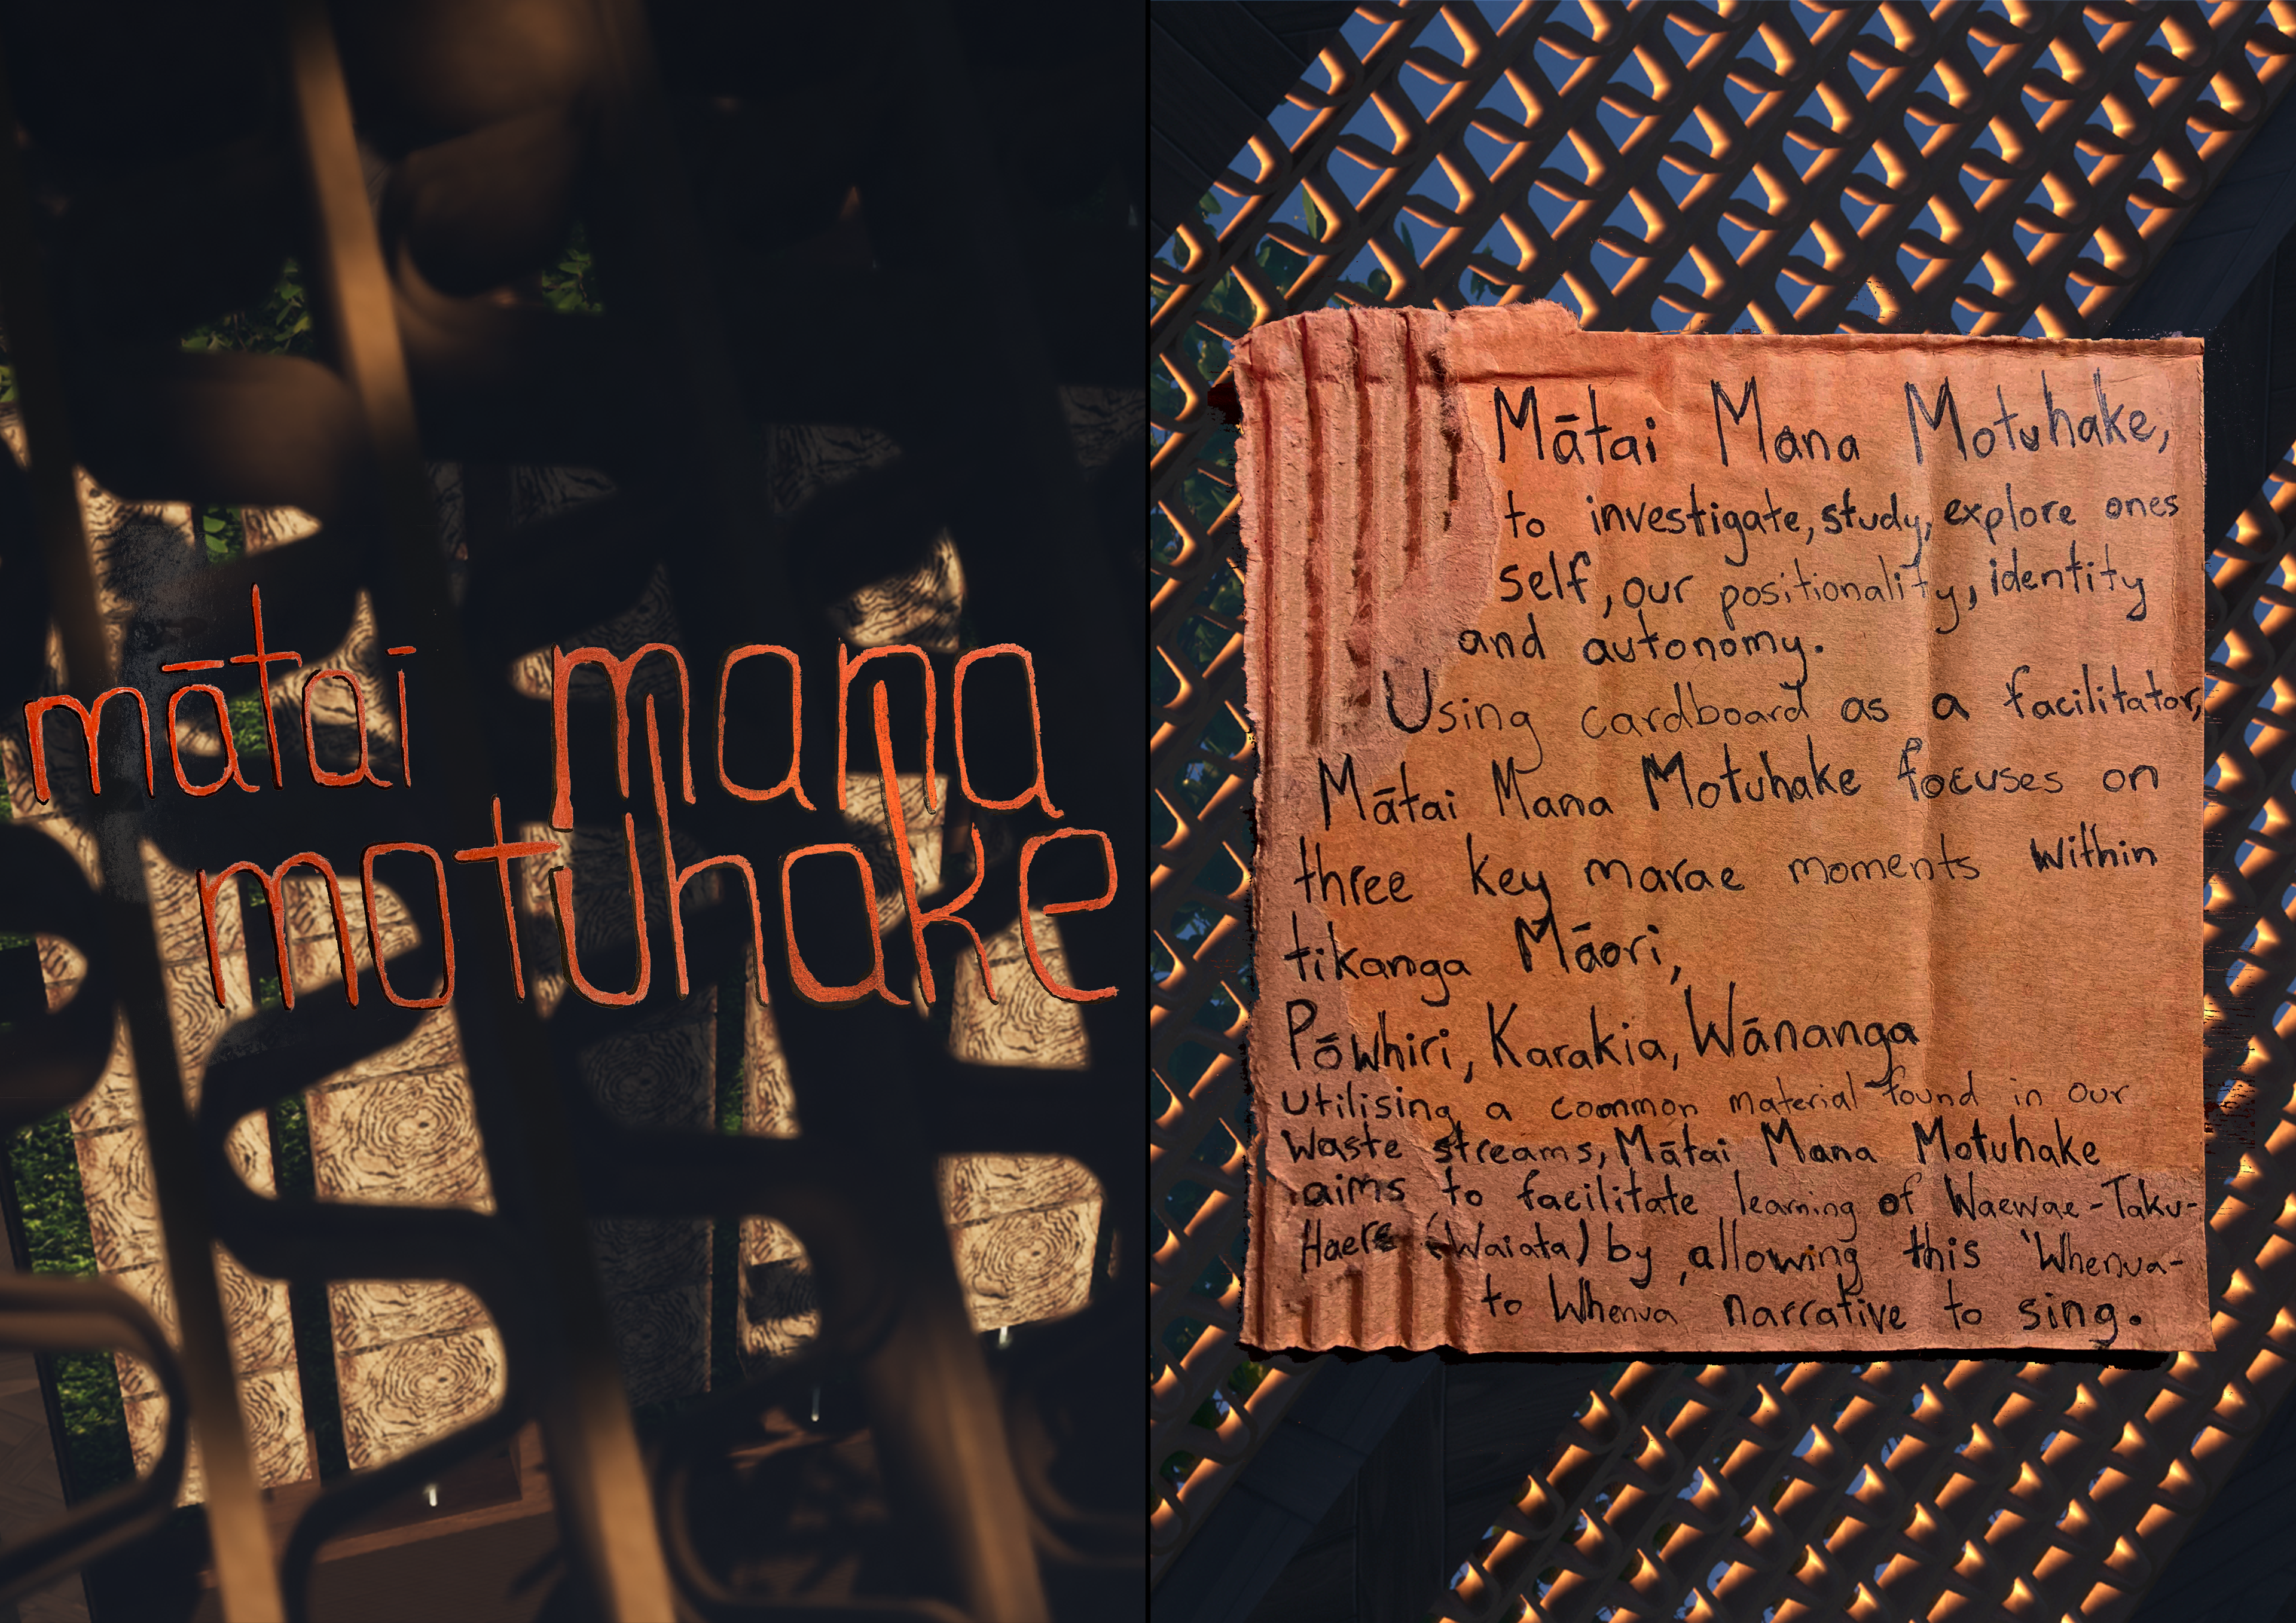 mātai mana
motuhake
Mātai Mana Motuhake,
to investigate, study, explore ones
self, our positionality, identity
and autonomy.
Using cardboard as a facilitator,
Mātai Mana Motuhake focuses on
three key marae moments within
tikanga Māori,
Pōwhiri, Karakia, Wānanga
Utilising a common material found in our
waste streams, Mātai Mana Motuhake
aims to facilitate learning of Waewae-Taku-
Haere (Waiata) by allowing this 'Whenua-
to Whenua narrative to sing.